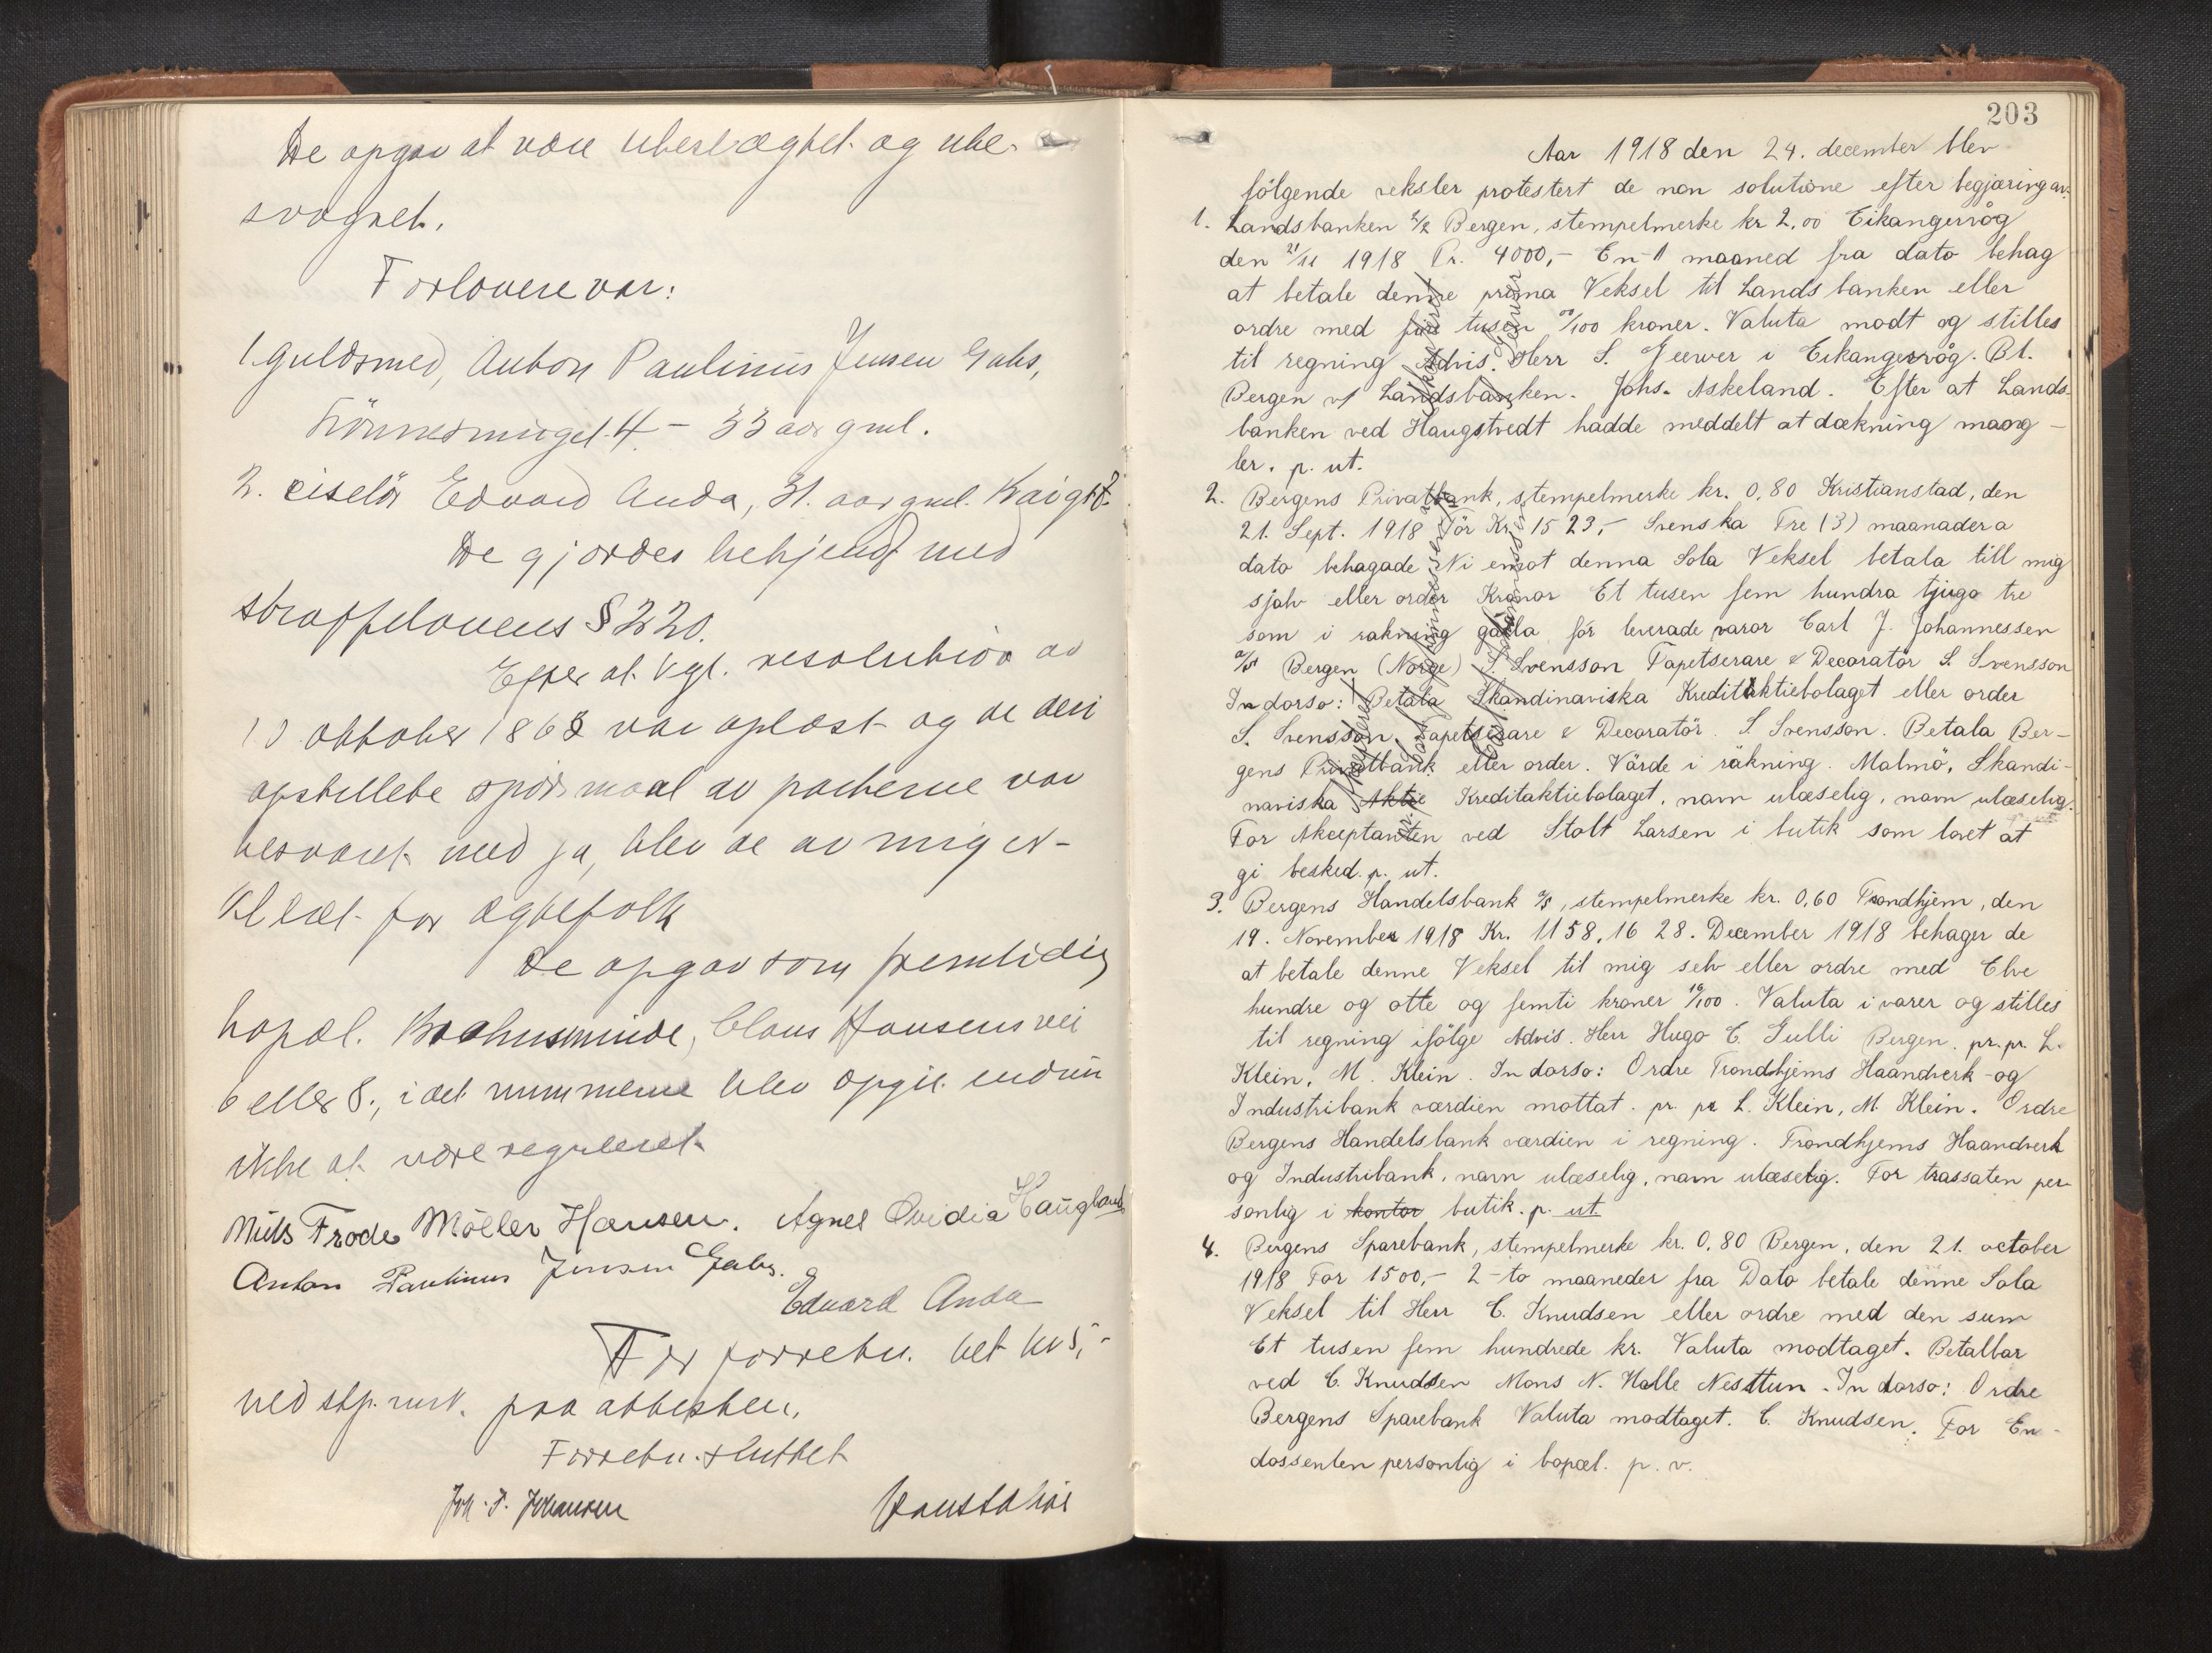 De opgav at være ubeslægtet og ube-
svogret.
Forlovere var:
1. guldsmed, Anton Paulinus Jensen Gabs,
4 - 33 aar gml.
2. ciselör Edvard Anda, 31. aar gml.
De gjordes bekjendt med
straffelovens § 220.
Efter at kgl. resolution av
10 oktober 1868 var oplæst og de deri
opstillete spörsmaal av parterne var
besvaret med ja, blev de av mig er-
klæt for ægtefolk
De opgav som fremtidig
bopæl. Claus Hansens vei
6 eller 8., idet numrene blev opgit endnu
ikke at være reguleret
Niels Frode Möller Hansen. Agnes Ovidia Haugland
Anton Paulinus Jensen Gabs.
Edvard Anda
For forretn. bet kr 5,-
ved stp. merk. paa attesten.
Forretn. sluttet
Joh. P. Johansen
203
Aar 1918 den 24. december blev
fölgende veksler protestert de non solutione efter begjæring av:
1. Landsbanken A/S Bergen, stempelmerke kr 2,00 Eikangervåg
den 21/11 1918 Pr. 4000,- En - 1 maaned fra dato behag
at betale denne prima Veksel til Landsbanken eller
ordre med fire tusen 00/100 kroner. Valuta modt og stilles
til regning Advis. Herr S. Jeewer i Eikangervåg. Bt.
Bergen v/ Landsbanken. Johs. Askeland. Efter at Lands-
banken ved Haugstvedt hadde meddelt at dækning mang-
ler. p. ut.
2. Bergens Privatbank, stempelmerke kr. 0,80 Kristianstad, den
21. Sept. 1918 För Kr. 1523,- Svenska Tre (3) maanader a
dato behagade Ni emot denna Sola Veksel betala till mig
sjalv eller order Kronor Et tusen fem hundra tjugo tre
som i rakning galla för lererade varor Carl J. Johannessen
A/S Bergen (Norge) S. Svensson Tapetserare & Decoratör S. Svensson
In dorso: Betala Skandinaviska Kreditaktiebolaget eller order
S. Svensson, Tapetserare & Decoratör. S. Svensson. Betala Ber-
gens Privatbank eller order. Värde i räkning. Malmö, Skandi-
naviska Aktie Kreditaktiebolaget, navn ulæselig, navn ulæselig.
For Akceptanten ved Stolt Larsen i butik som lovet at
gi besked. p. ut.
3. Bergens Handelsbank A/S, stempelmerke kr. 0,60 Trondhjem, den
19. November 1918 Kr. 1158,16 28. December 1918 behager de
at betale denne Veksel til mig selv eller ordre med Elve
hundre og otte og femti kroner 16/100. Valuta i varer og stilles
til regning ifölge Advis. Herr Hugo C. Gulli Bergen. pr. pr. L.
Klein, M. Klein. In dorso: Ordre Trondhjems Haandverk - og
Industribank værdien mottat. pr. pr L. Klein, M. Klein. Ordre
Bergens Handelsbank værdien i regning. Trondhjems Haandverk
og Industribank, navn ulæselig, navn ulæselig. For trassaten per-
sonlig i kontor butik. p. ut.
4. Bergens Sparebank, stempelmerke kr. 0,80 Bergen, den 21. october
1918 For 1500,- 2 - to maaneder fra Dato betale denne Sola
Veksel til Herr C. Knudsen eller ordre med den sum
Et tusen fem hundrede kr. Valuta modtaget. Betalbar
ved C. Knudsen Mons N. Halle Nesttun. In dorso: Ordre
Bergens Sparebank Valuta modtaget. C. Knudsen. For En-
dossenten personlig i bopæl. p. v.